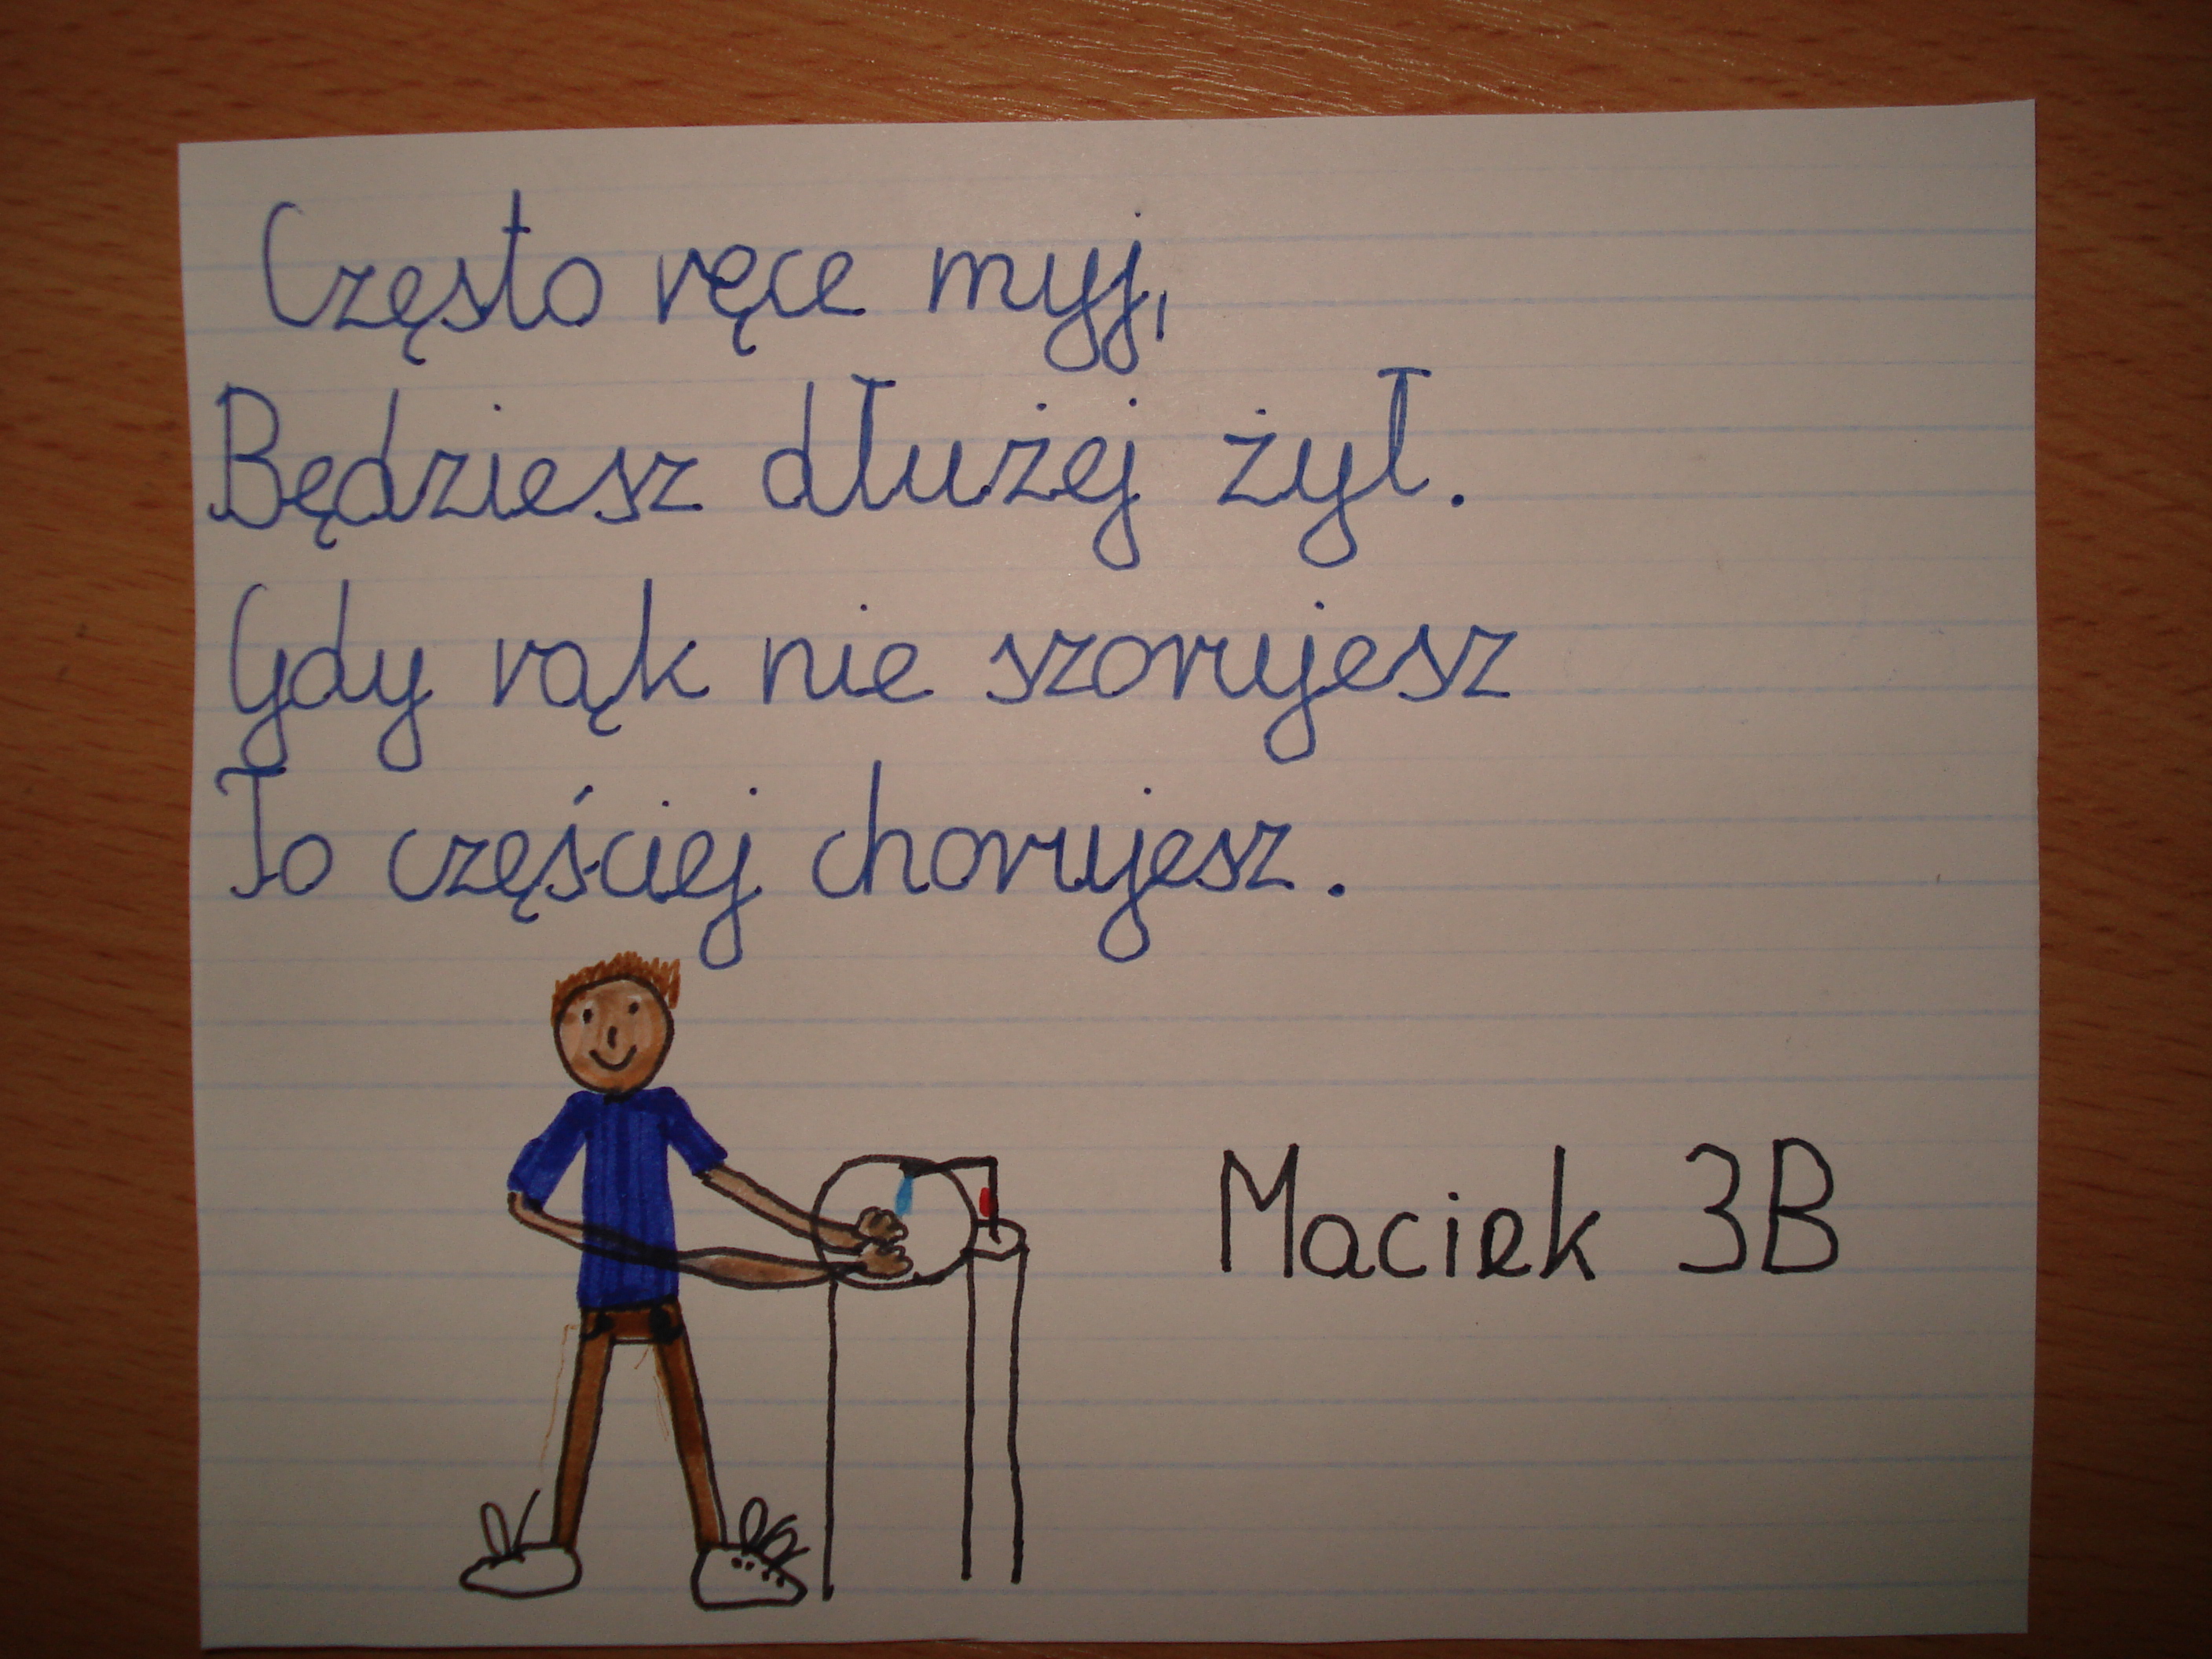 Często ręce myj,
Będziesz dłużej żył.
Gdy rąk nie szorujesz
To częściej chorujesz.
Maciek 3B